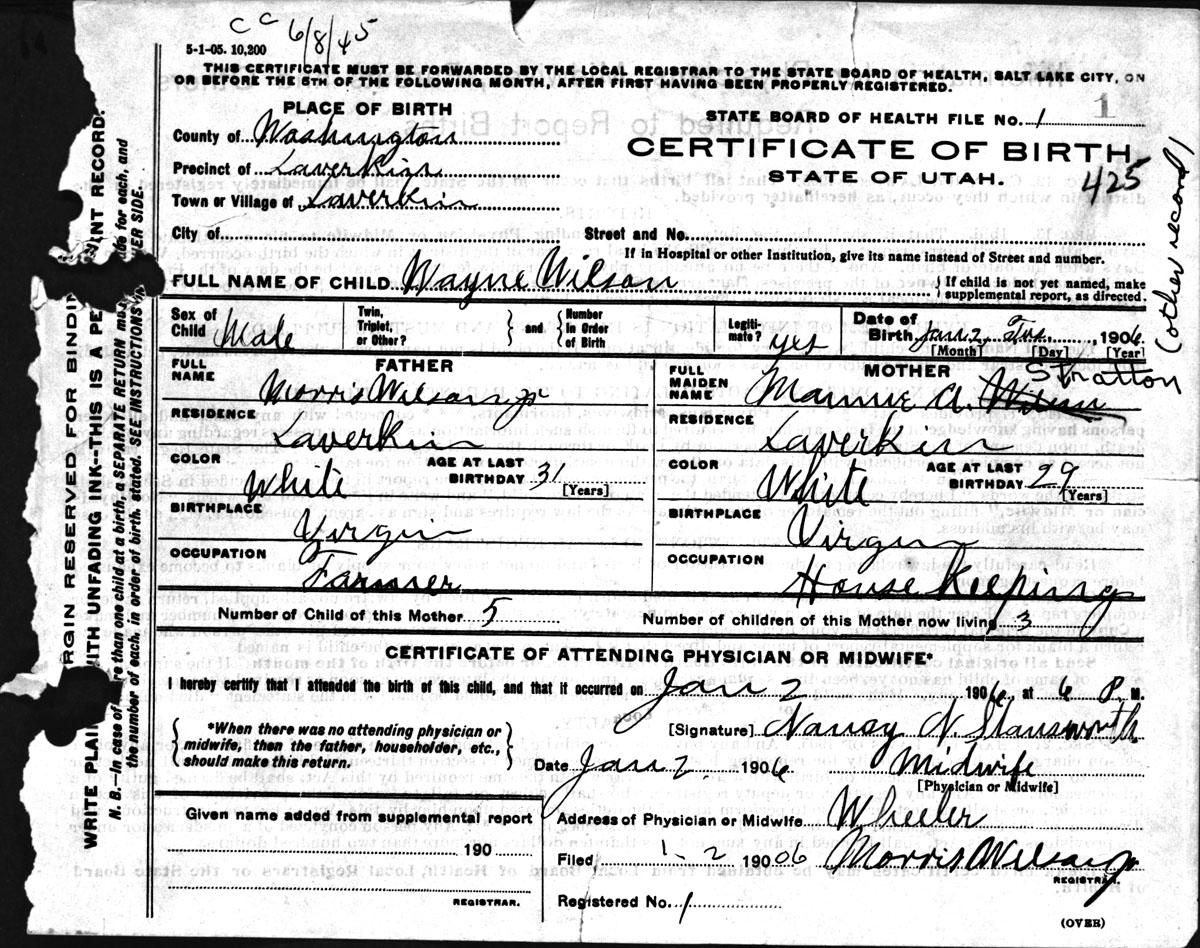 cc 6/8/45
5-1-05. 10,200
THIS CERTIFICATE MUST BE FORWARDED BY THE LOCAL REGISTRAR TO THE STATE BOARD OF HEALTH, SALT LAKE CITY, ON
OR BEFORE THE 5TH OF THE FOLLOWING MONTH, AFTER FIRST HAVING BEEN PROPERLY REGISTERED.
PLACE OF BIRTH
County of Washington
Precinct of Laverkin
Town or Village of Laverkin
STATE BOARD OF HEALTH FILE No. 1
1
CERTIFICATE OF BIRTH
STATE OF UTAH.
425
(other record)
City of Street and No.
If in Hospital or other Institution, give its name instead of Street and number.
FULL NAME OF CHILD Wayne Wilson { If child is not yet named, make supplemental report, as directed.
Sex of Child Male
Twin, Triplet, or Other? } and { Number in Order of Birth
Legiti- mate? yes
Date of Birth, Jan 2 Tus. 1906
[Month] [Day] [Year]
FATHER
FULL NAME Morris Wilson jr
RESIDENCE Laverkin
COLOR White AGE AT LAST BIRTHDAY 31 [Years]
BIRTHPLACE Virgin
OCCUPATION Farmer
MOTHER
Stratton
FULL MAIDEN NAME Mamie A.
RESIDENCE Laverkin
COLOR White AGE AT LAST BIRTHDAY 29 [Years]
BIRTHPLACE Virgin
OCCUPATION House keeping
Number of Child of this Mother 5 Number of children of this Mother now living 3
CERTIFICATE OF ATTENDING PHYSICIAN OR MIDWIFE*
I hereby certify that I attended the birth of this child, and that it occurred on Jan 2 1906, at 6 P. M.
{ *When there was no attending physician or midwife, then the father, householder, etc., should make this return. }
[Signature] Nancy N.
Date Jan 2. 1906 Midwife
[Physician or Midwife]
Given name added from supplemental report
190
REGISTRAR.
Address of Physician or Midwife Wheeler
Filed 1-2 1906 Morris Wilson jr
REGISTRAR.
Registered No. 1
(OVER)
RGIN RESERVED FOR BINDIN
WRITE PLAIN ITH UNFADING INK--THIS IS A PE NENT RECORD.
N. B.--In case of re than one child at a birth, a SEPARATE RETURN mu ade for each, and
the number of each, in order of birth, stated. SEE INSTRUCTIONS VER SIDE.